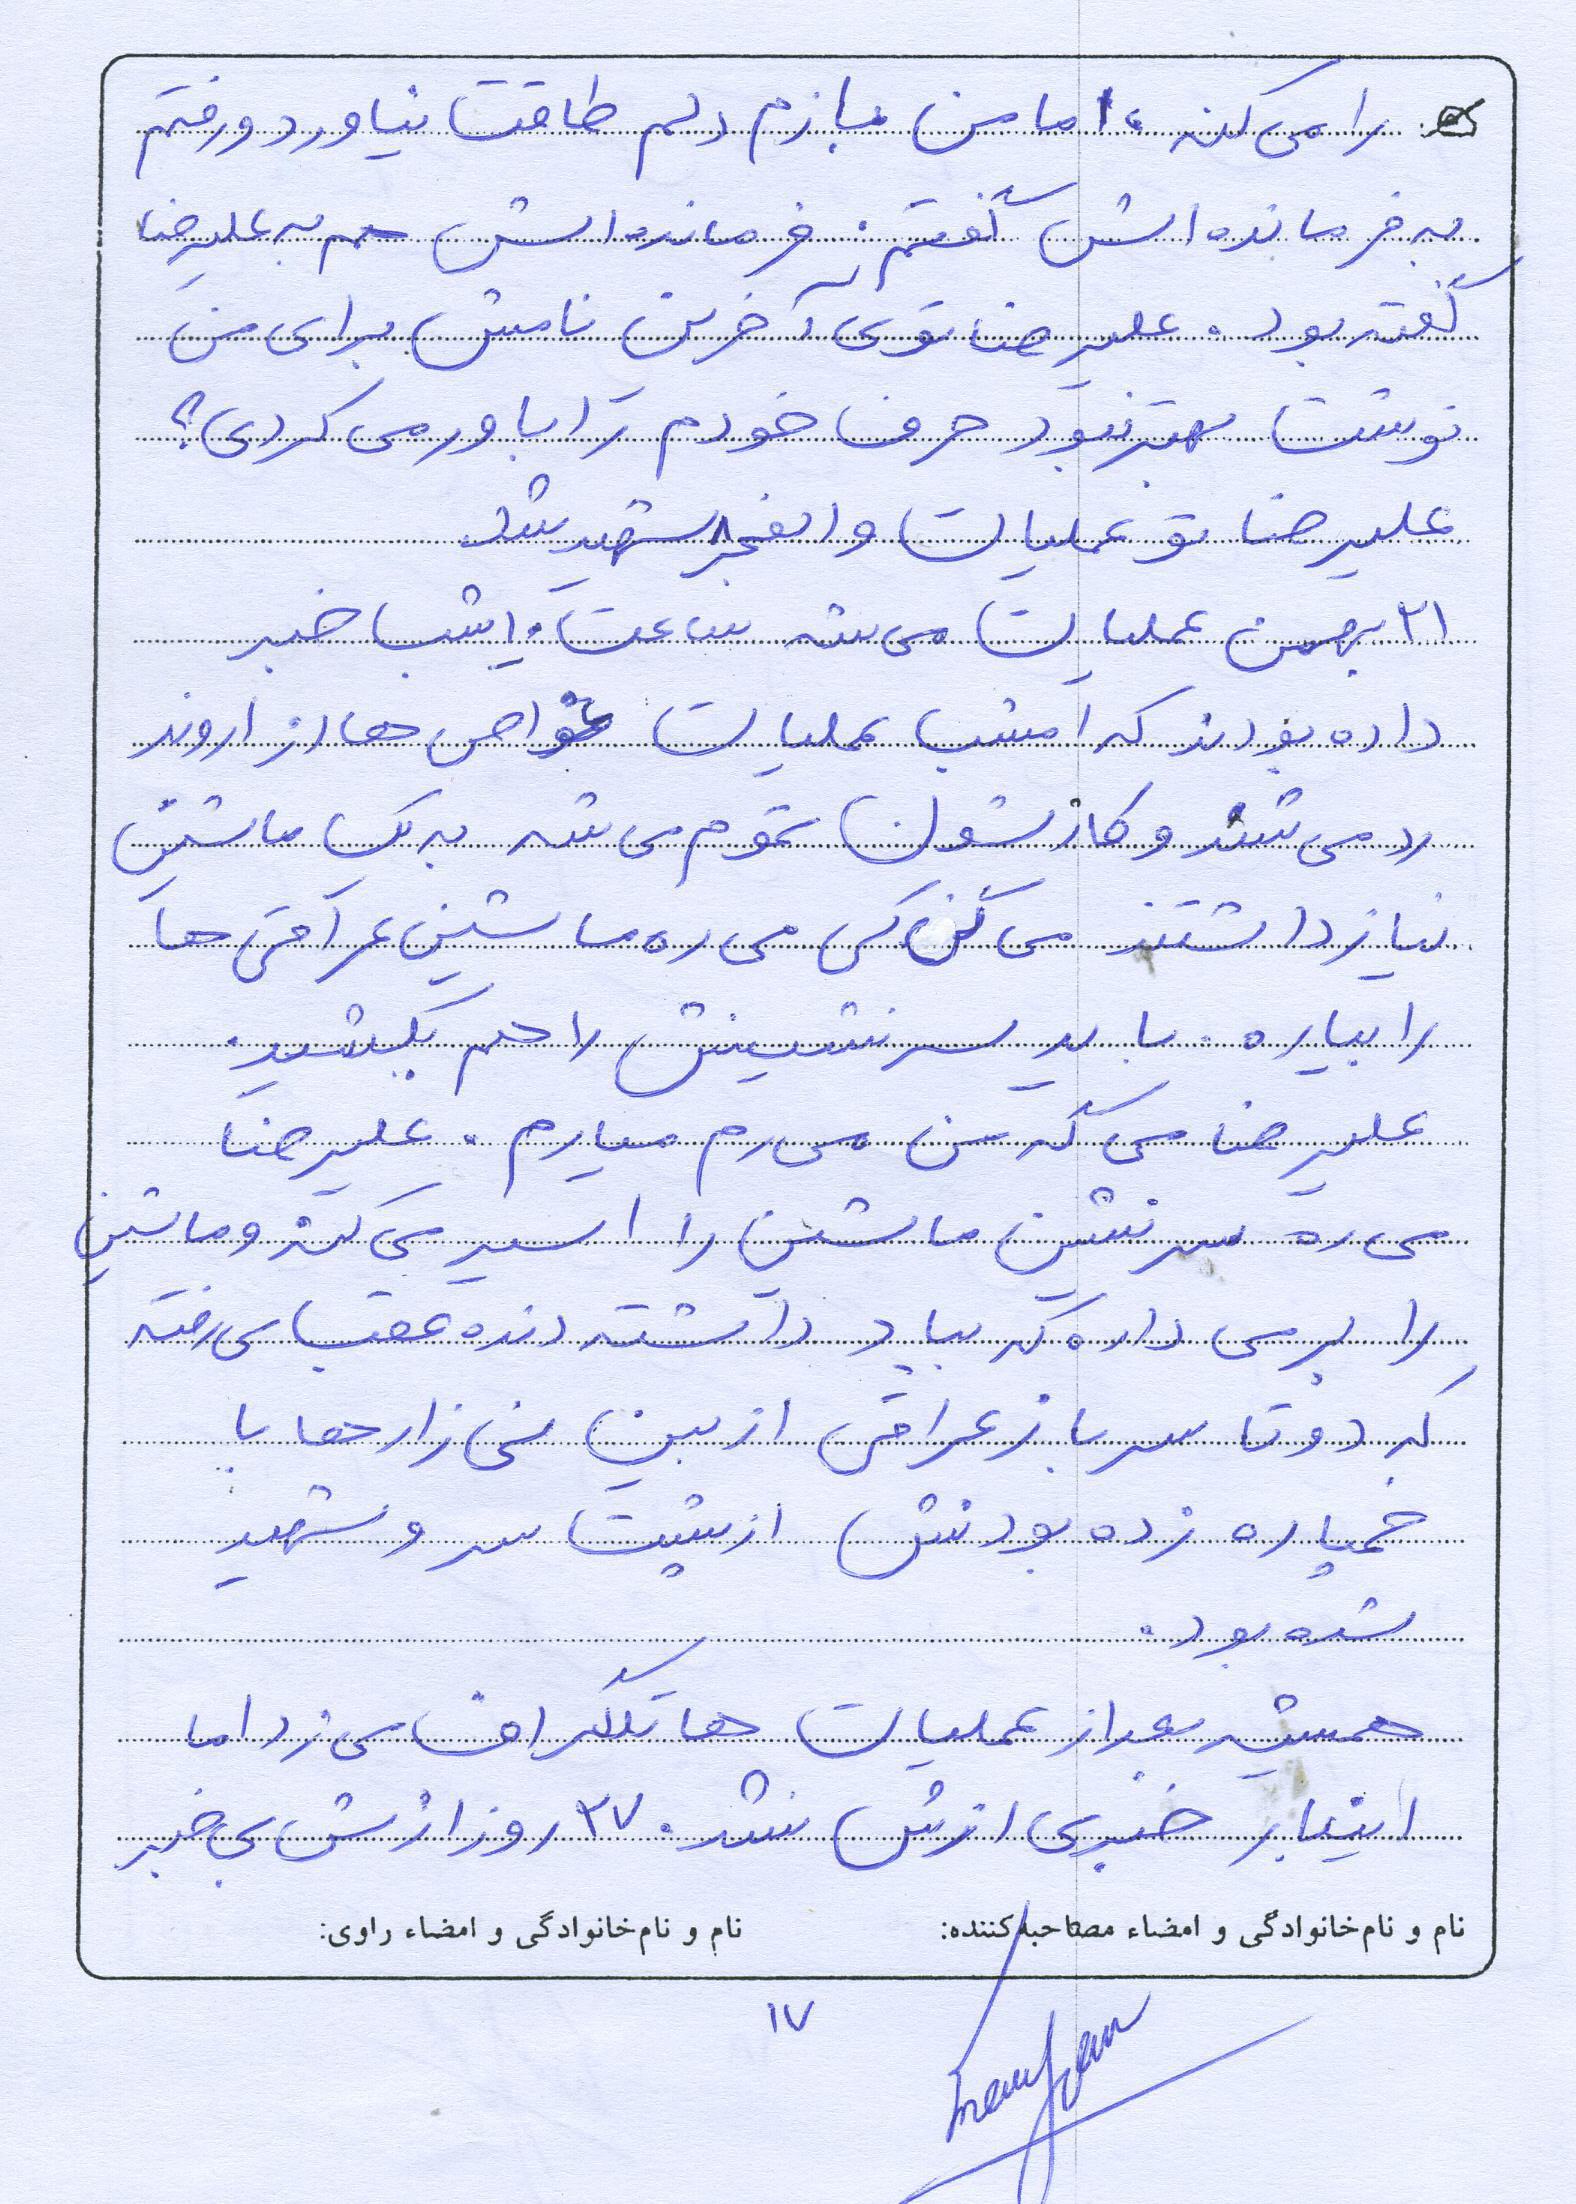 را می کنه، اما من بازم دلم طاقت نیاورد و رفتم
به فرمانده اش گفتم. فرمانده اش هم به علیرضا
گفته بود. علیرضا توی آخرین نامش برای من
نوشت بهتر نبود حرف خودم را باور می کردی؟
علیرضا تو عملیات والفجر ۸ شهید شد
۲۱ بهمن عملیات می شه ساعت ۱۰ شب خبر
داده بودند که امشب عملیات غواص ها از اروند
رد می شند و کارشون تموم می شه به یک ماشین
نیاز داشتند می گن کی می ره ماشین عراقی ها
را بیاره. باید سرنشینش را هم بکشید.
علیرضا می گه من می رم میارم. علیرضا
می ره سرنشین ماشین را اسیر می کنه و ماشین
را بر می داره که بیاد داشته دنده عقب می رفته
که دو تا سرباز عراقی از بین نی زارها با
خمپاره زده بودنش از پشت سر و شهید
شده بود.
همیشه بعد از عملیات ها تلگراف می زد اما
اینبار خبری ازش نشد. ۳۷ روز ازش بی خبر
نام و نام‌خانوادگی و امضاء مصاحبه‌کننده: نام و نام‌خانوادگی و امضاء راوی:
۱۷